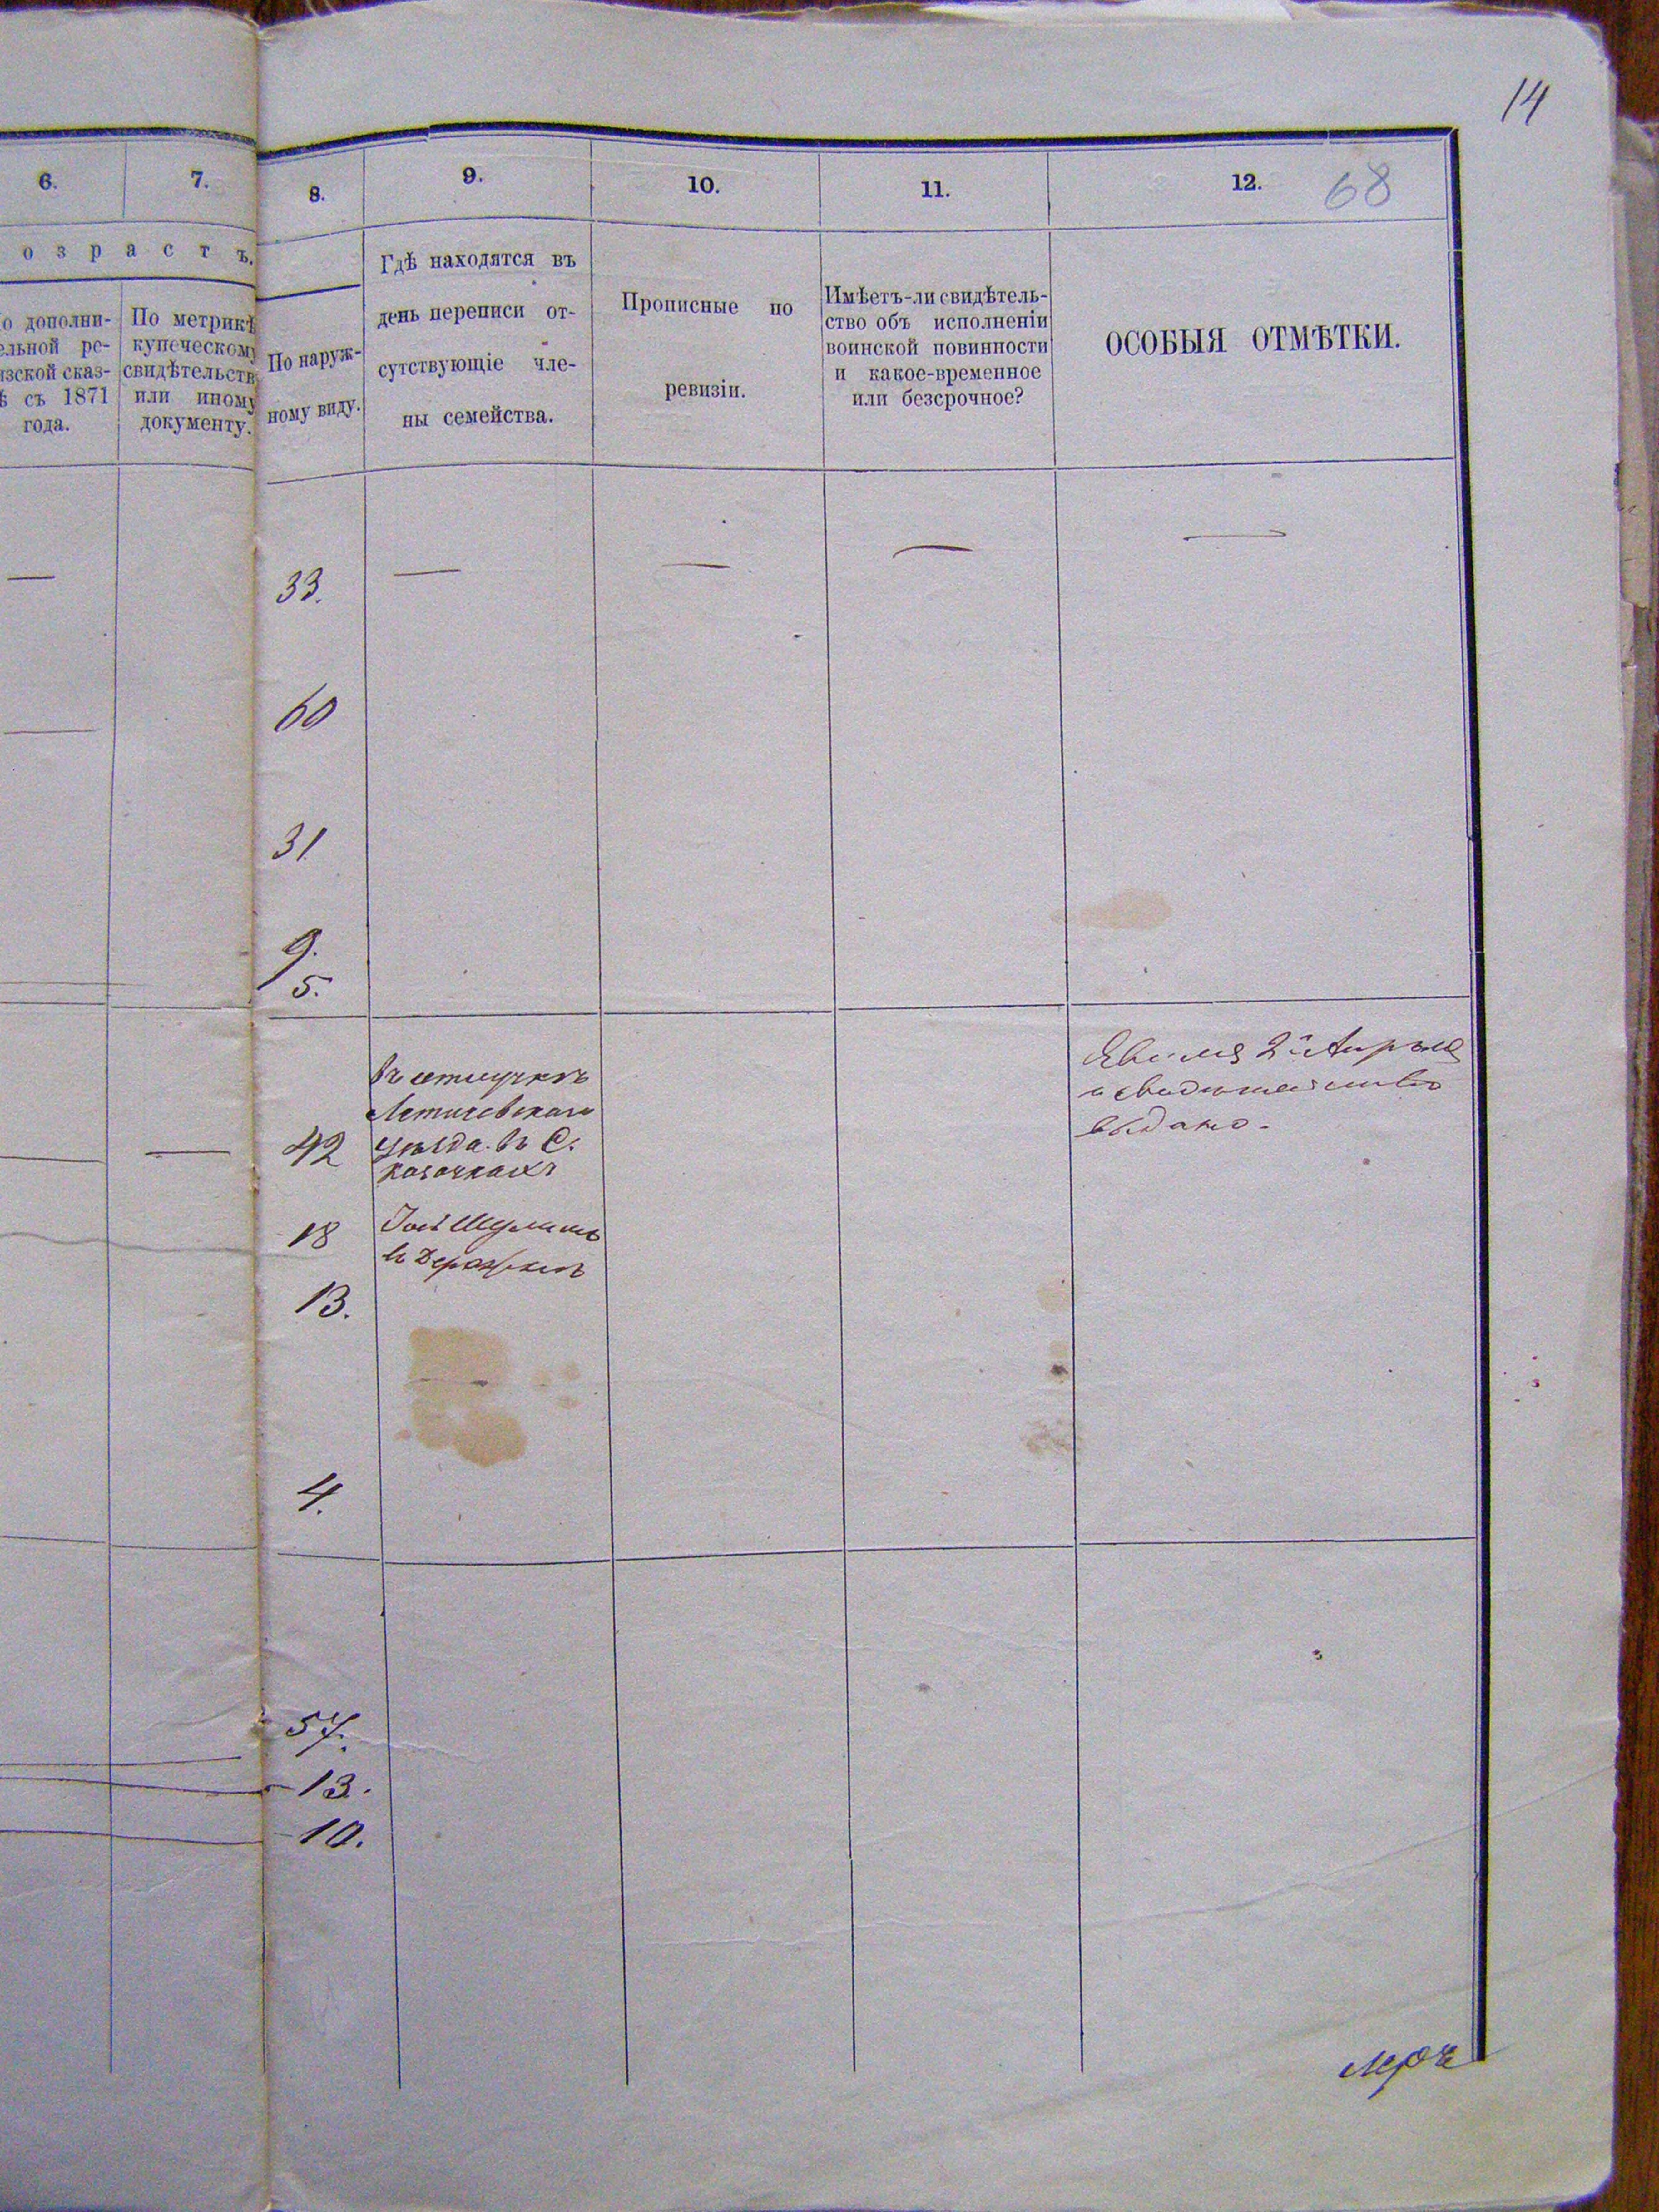 14
6.
7.
8.
9.
10.
11.
12.
68
озрастъ.
о дополни-
ельной ре-
изской сказ-
ѣ съ 1871
года.
По метрикѣ
купеческому
свидѣтельств
или иному
документу.
По наруж-
ному виду.
Гдѣ находятся въ
день переписи от-
сутствующіе чле-
ны семейства.
Прописные по
ревизіи.
Имѣетъ-ли свидѣтель-
ство объ исполненіи
воинской повинности
и какое-временное
или безсрочное?
ОСОБЫЯ ОТМѢТКИ.
33.
60
31.
9.
5.
42
въ
Летичевскаго
уѣзда. въ С.
Козачкахъ
2 Апрѣля
и свидѣтельство
выдано.
18
въ Деражнѣ
13.
4.
57.
13.
10.